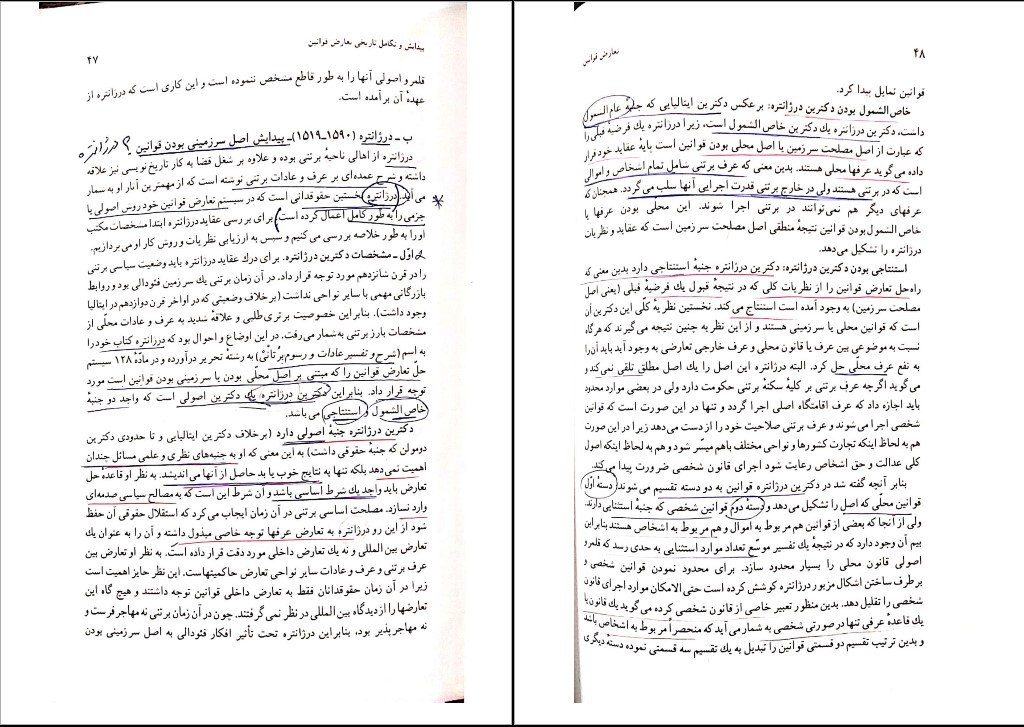 پیدایش و تکامل تاریخی تعارض قوانین
۴۷
قلمرو اصولی آنها را به طور قاطع مشخص ننموده است و این کاری است که درژانتره از
عهدۀ آن برآمده است.
ب ـ درژانتره (۱۵۹۰-۱۵۱۹) ـ پیدایش اصل سرزمینی بودن قوانین
درژانتره از اهالی ناحیۀ برتنی بوده و علاوه بر شغل قضا به کار تاریخ نویسی نیز علاقه
داشته و شرح عمده‌ای بر عرف و عادات برتنی نوشته است که از مهمترین آثار او به شمار
می‌آید. درژانتره نخستین حقوقدانی است که در سیستم تعارض قوانین خود روش اصولی یا
جزمی را به طور کامل اعمال کرده است. برای بررسی عقاید درژانتره ابتدا مشخصات مکتب
او را به طور خلاصه بررسی می‌کنیم و سپس به ارزیابی نظریات و روش کار او می‌پردازیم.
اوّل ـ مشخصات دکترین درژانتره. برای درك عقاید درژانتره باید وضعیت سیاسی برتنی
را در قرن شانزدهم مورد توجه قرار داد. در آن زمان برتنی یك سرزمین فئودالی بود و روابط
بازرگانی مهمی با سایر نواحی نداشت (برخلاف وضعیتی که در اواخر قرن دوازدهم در ایتالیا
وجود داشت). بنابراین خصوصیت برتری طلبی و علاقۀ شدید به عرف و عادات محلّی از
مشخصات بارز برتنی به شمار می‌رفت. در این اوضاع و احوال بود که درژانتره کتاب خود را
به اسم (شرح و تفسیر عادات و رسوم برُتانْیْ) به رشتۀ تحریر درآورده و در مادّۀ ۱۲۸ سیستم
حلّ تعارض قوانین را که مبتنی بر اصل محلّی بودن یا سرزمینی بودن قوانین است مورد
توجه قرار داد. بنابراین دکترین درژانتره یك دکترین اصولی است که واجد دو جنبۀ
خاص الشمول و استنتاجی می‌باشد.
دکترین درژانتره جنبۀ اصولی دارد (برخلاف دکترین ایتالیایی و تا حدودی دکترین
دومولن که جنبۀ حقوقی داشت) به این معنی که او به جنبه‌های نظری و علمی مسائل چندان
اهمیت نمی‌دهد بلکه تنها به نتایج خوب یا بد حاصل از آنها می‌اندیشد. به نظر او قاعدۀ حل
تعارض باید واجد یك شرط اساسی باشد و آن شرط این است که به مصالح سیاسی صدمه‌ای
وارد نسازد. مصلحت اساسی برتنی در آن زمان ایجاب می‌کرد که استقلال حقوقی آن حفظ
شود از این رو درژانتره به تعارض عرفها توجه خاصی مبذول داشته و آن را به عنوان یك
تعارض بین المللی و نه یك تعارض داخلی مورد دقت قرار داده است. به نظر او تعارض بین
عرف برتنی و عرف و عادات سایر نواحی تعارض حاکمیتهاست. این نظر حایز اهمیت است
زیرا در آن زمان حقوقدانان فقط به تعارض داخلی قوانین توجه داشتند و هیچ گاه این
تعارضها را از دیدگاه بین المللی در نظر نمی‌گرفتند. چون در آن زمان برتنی نه مهاجر فرست و
نه مهاجر پذیر بود، بنابراین درژانتره تحت تأثیر افکار فئودالی به اصل سرزمینی بودن
۴۸
تعارض قوانین
قوانین تمایل پیدا کرد.
خاص الشمول بودن دکترین درژانتره: برعکس دکترین ایتالیایی که جنبۀ عام الشمول
داشت، دکترین درژانتره یك دکترین خاص الشمول است، زیرا درژانتره یك فرضیۀ قبلی را
که عبارت از اصل مصلحت سرزمین یا اصل محلی بودن قوانین است پایۀ عقاید خود قرار
داده می‌گوید عرفها محلی هستند. بدین معنی که عرف برتنی شامل تمام اشخاص و اموالی
است که در برتنی هستند ولی در خارج برتنی قدرت اجرایی آنها سلب می‌گردد. همچنان که
عرفهای دیگر هم نمی‌توانند در برتنی اجرا شوند. این محلی بودن عرفها یا
خاص الشمول بودن قوانین نتیجۀ منطقی اصل مصلحت سرزمین است که عقاید و نظریات
درژانتره را تشکیل می‌دهد.
استنتاجی بودن دکترین درژانتره: دکترین درژانتره جنبۀ استنتاجی دارد بدین معنی که
راه حل تعارض قوانین را از نظریات کلی که در نتیجۀ قبول یك فرضیۀ قبلی (یعنی اصل
مصلحت سرزمین) به وجود آمده است استنتاج می‌کند. نخستین نظریۀ کلی این دکترین آن
است که قوانین محلی یا سرزمینی هستند و از این نظریه چنین نتیجه می‌گیرند که هرگاه
نسبت به موضوعی بین عرف یا قانون محلی و عرف خارجی تعارضی به وجود آید باید آن را
به نفع عرف محلّی حل کرد. البته درژانتره این اصل را یك اصل مطلق تلقی نمی‌کند و
می‌گوید اگرچه عرف برتنی بر کلیۀ سکنۀ برتنی حکومت دارد ولی در بعضی موارد محدود
باید اجازه داد که عرف اقامتگاه اصلی اجرا گردد و تنها در این صورت است که قوانین
شخصی اجرا می‌شوند و عرف برتنی صلاحیت خود را از دست می‌دهد زیرا در این صورت
هم به لحاظ اینکه تجارت کشورها و نواحی مختلف باهم میسّر شود و هم به لحاظ اینکه اصول
کلی عدالت و حق اشخاص رعایت شود اجرای قانون شخصی ضرورت پیدا می‌کند.
بنابر آنچه گفته شد در دکترین درژانتره قوانین به دو دسته تقسیم می‌شوند: دستۀ اوّل
قوانین محلّی که اصل را تشکیل می‌دهد و دستۀ دوم قوانین شخصی که جنبۀ استثنایی دارند.
ولی از آنجا که بعضی از قوانین هم مربوط به اموال و هم مربوط به اشخاص هستند بنابراین
بیم آن وجود دارد که در نتیجۀ یك تفسیر موسّع تعداد موارد استثنایی به حدی رسد که قلمرو
اصولی قانون محلی را بسیار محدود سازد. برای محدود نمودن قوانین شخصی و
برطرف ساختن اشکال مزبور درژانتره کوشش کرده است حتی الامکان موارد اجرای قانون
شخصی را تقلیل دهد. بدین منظور تعبیر خاصی از قانون شخصی کرده می‌گوید یك قانون یا
یك قاعدۀ عرفی تنها در صورتی شخصی به شمار می‌آید که منحصراً مربوط به اشخاص باشد
و بدین ترتیب تقسیم دو قسمتی قوانین را تبدیل به یك تقسیم سه قسمتی نموده دستۀ دیگری